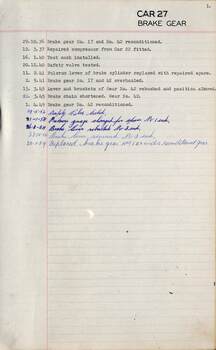 1.
CAR 27
BRAKE GEAR
29.10.36 Brake gear No. 17 and No. 42 reconditioned.
13. 5.37 Repaired compressor from Car 22 fitted.
16. 1.40 Test cock installed.
20.12.40 Safety valve tested.
11. 2.41 Fulcrum lever of brake cylinder replaced with repaired spare.
2. 9.41 Brake gear No. 17 and 42 overhauled.
13. 5.49 Lever and brackets of Gear No. 42 rebushed and position altered.
25. 5.49 Brake chain shortened. Gear No. 42.
1. 6.49 Brake gear No. 42 reconditioned.
Safety Valve tested.
gauge changed for spare No 1 end.
Brake lever rebushed No 2 end.
Brake lever No 2 end.
Replaced brake gear with reconditioned gear